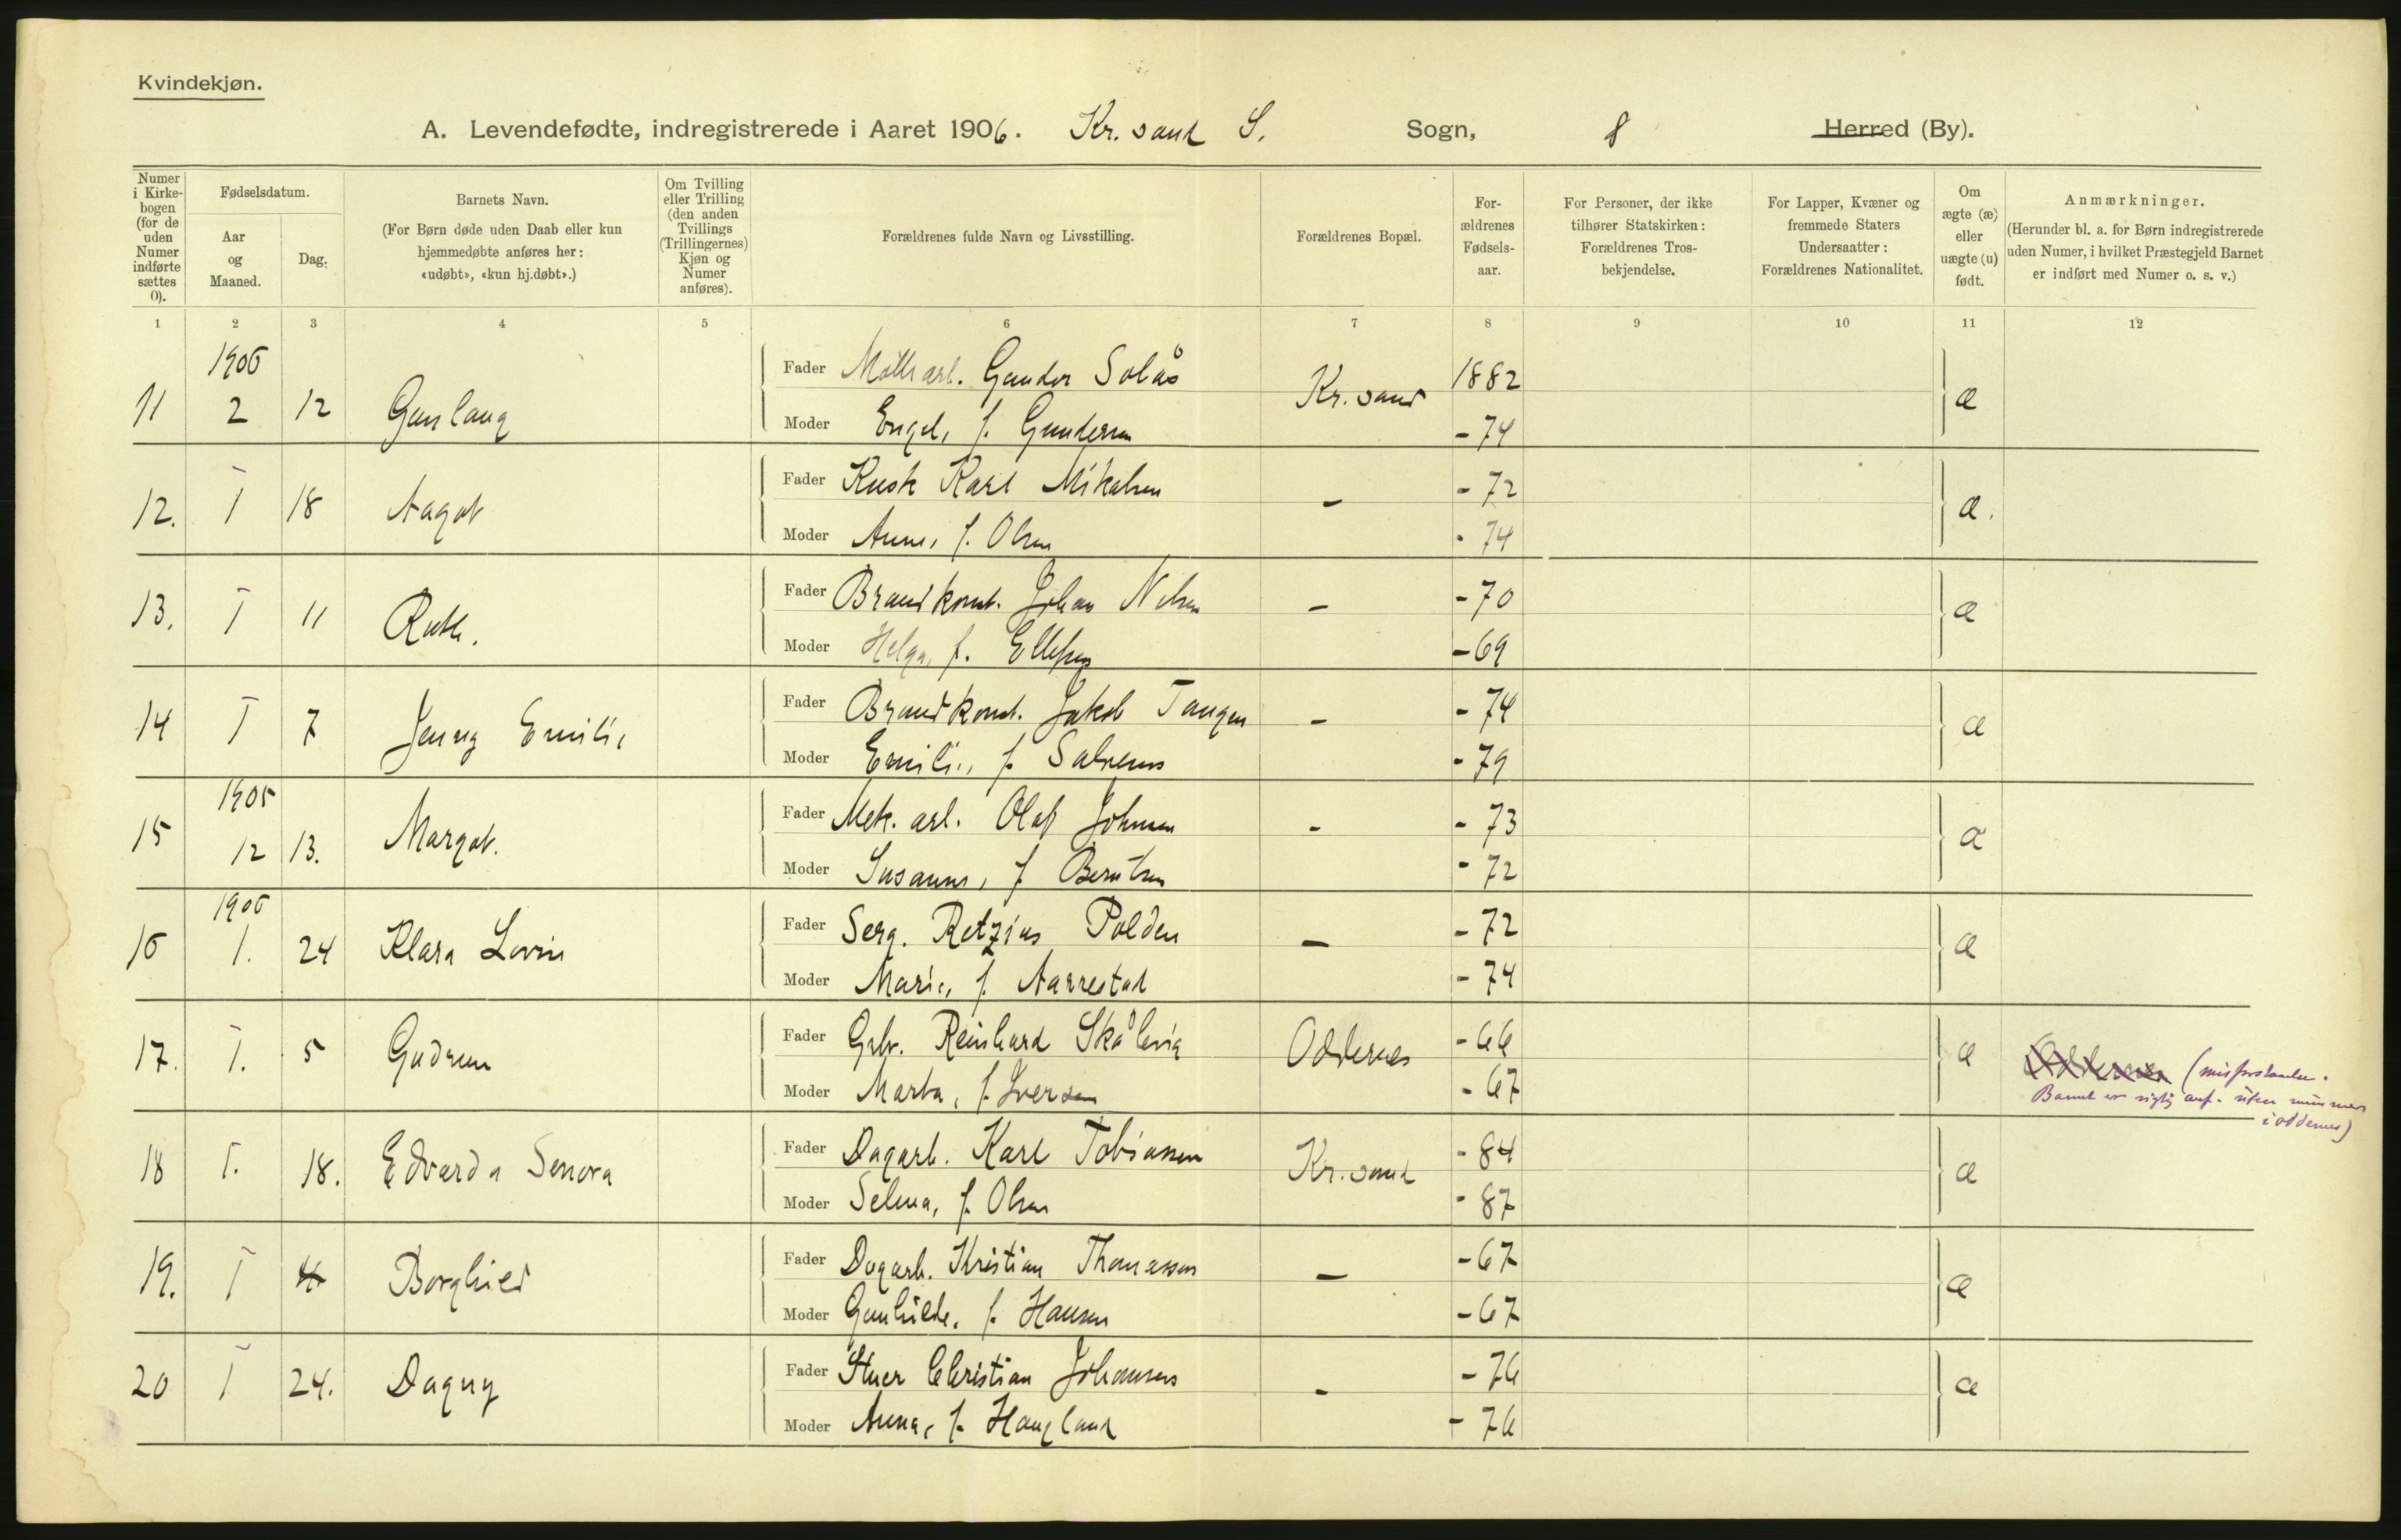 Kvindekjøn.
A. Levendefødte, indregistrerede i Aaret 1906. Kr.sand S. Sogn, 8 Herred (By).
Numer i Kirkebogen (for de uden Numer indførte sættes 0).
Fødselsdatum.
Aar og Maaned.
Dag.
Barnets Navn.
(For Børn døde uden Daab eller kun hjemmedøbte anføres her: «udøbt», «kun hj.døbt».)
Om Tvilling eller Trilling (den anden Tvillings (Trillingernes) Kjøn og Numer anføres).
Forældrenes fulde Navn og Livsstilling.
Forældrenes Bopæl.
Forældrenes Fødselsaar.
For Personer, der ikke tilhører Statskirken: Forældrenes Trosbekjendelse.
For Lapper, Kvæner og fremmede Staters Undersaatter: Forældrenes Nationalitet.
Om ægte (æ) eller uægte (u) født.
Anmærkninger.
(Herunder bl. a. for Børn indregistrerede uden Numer, i hvilket Præstegjeld Barnet er indført med Numer o. s. v.)
1 2 3 4 5 6 7 8 9 10 11 12
1906
11 2 12 Gunlaug Fader Møllearb. Gunder Solås Kr.sand 1882 æ
Moder Engel, f. Gundersen - 74
12. 1 18 Aagot Fader Kusk Karl Mikalsen - - 72 æ.
Moder Anne, f. Olsen - 74
13. 1 11 Ruth. Fader Brandkonst. Johan Nilsen - - 70 æ
Moder Helga, f. Ellefsen - 69
14 1 7 Jenny Emilie Fader Brandkonst. Jakob Tangen - - 74 æ
Moder Emilie, f. - 79
1905
15 12 13. Margot. Fader Mek. arb. Olaf Johnsen - - 73 æ
Moder Susanne, f. Berntsen - 72
1906
16 1. 24 Klara Lovise Fader Serg. Retzius Polden - - 72 æ
Moder Marie, f. Aarrestad - 74
17. 1. 5 Gudrun Fader Reinhard Skålevig Oddernes - 66 æ Oddernes (misforstaaelse.
Moder Marta, f. Iversen - 67 Barnet er rigtig anf. uten nummer
i oddernes)
18 1. 18. Edvarda Senora Fader Dagarb. Karl Tobiassen Kr.sand - 84 æ
Moder Selma, f. Olsen - 87
19. 1 Borghild Fader Dagarb. Kristian Thomassen - - 67 æ
Moder Gunhilde, f. Hansen - 67
20 1 24. Dagny Fader Stuer Christian Johansen - - 76 æ
Moder Anna, f. Haugland - 76